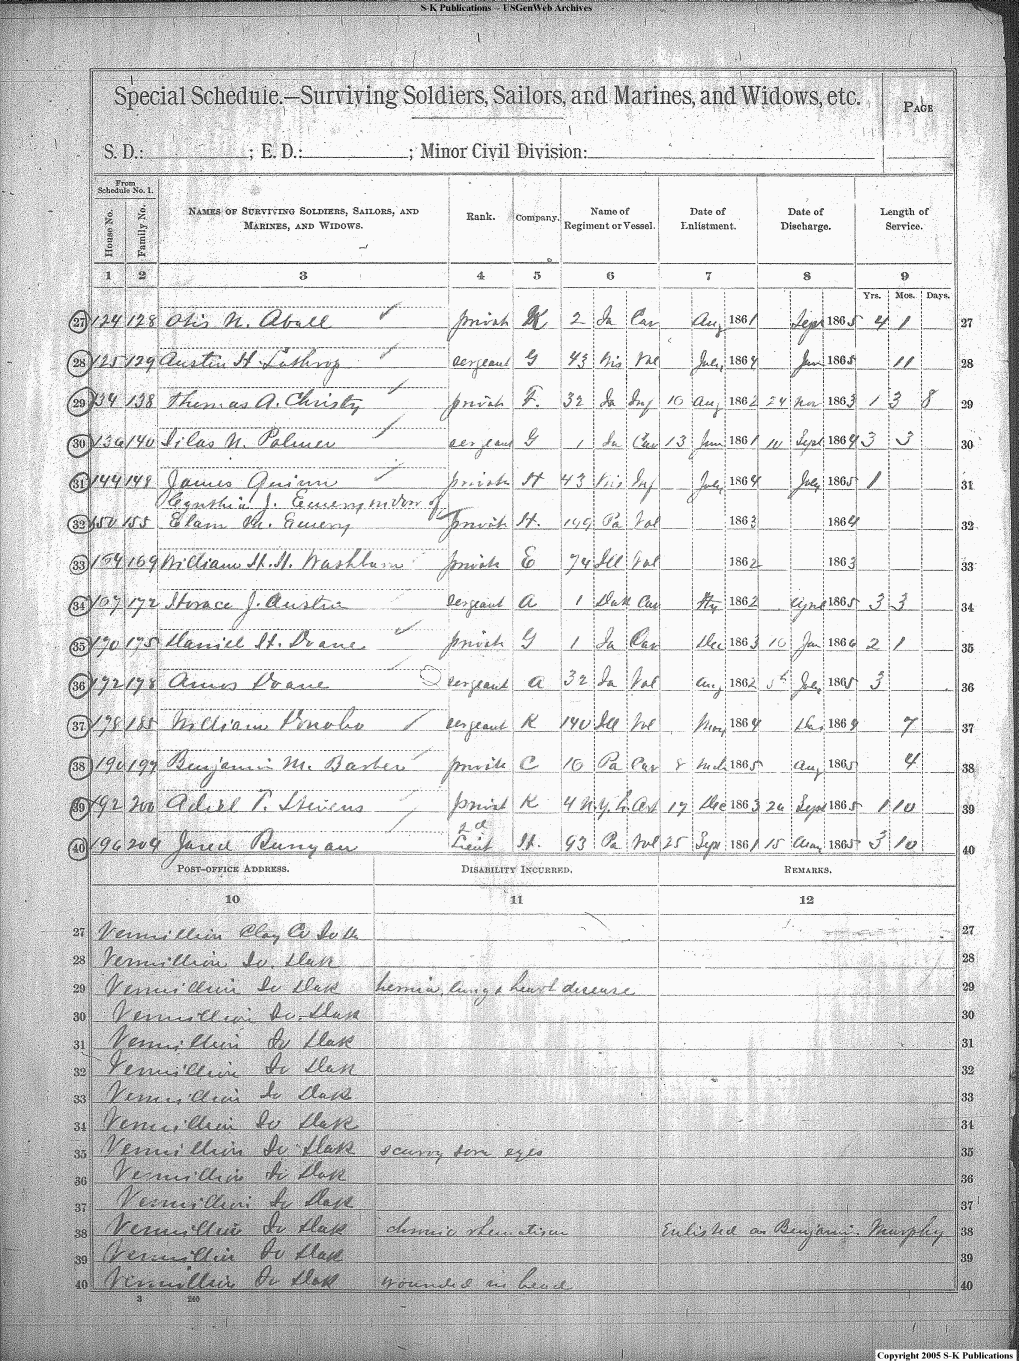 S-K Publications – USGenWeb Archives
Special Schedule.—Surviving Soldiers, Sailors, and Marines, and Widows, etc.
PAGE
S. D.: ; E. D.: ; Minor Civil Division:
From Schedule No. 1.
House No. Family No. NAMES OF SURVIVING SOLDIERS, SAILORS, AND MARINES, AND WIDOWS. Rank. Company. Name of Regiment or Vessel. Date of Enlistment. Date of Discharge. Length of Service.
1 2 3 4 5 6 7 8 9
Yrs. Mos. Days.
27 124 128 Otis N. private K 2 Ia Cav Aug 1861 Sept 1865 4 1 27
28 125 129 Austin H Lathrop sergeant G 43 Wis Vol July 1864 Jun 1865 11 28
29 134 138 Thomas A. Christy private F. 32 Ia Inf 10 Aug 1862 24 Nov 1863 1 3 8 29
30 136 140 Silas N. Palmer sergeant G 1 Ia Cav 13 Jun 1861 10 Sept 1864 3 3 30
31 144 148 James Quinn private H 43 Wis Inf July 1864 July 1865 1 31
Cynthia J. Emery widow of
32 150 155 Elam M. Emery private H. 199 Pa Vol 1863 1864 32
33 169 William H. H. Washburn private E 74 Ill Vol 1862 1863 33
34 172 Horace J. Austin sergeant A 1 Dak Cav 1862 April 1865 3 3 34
35 170 175 Daniel H. Doane private G 1 Ia Cav Dec 1863 10 Jan 1866 2 1 35
36 172 178 Amos Doane sergeant A 32 Ia Vol Aug 1862 July 1865 3 36
37 178 185 William Donoho sergeant K 140 Ill Vol May 1864 1864 7 37
38 190 197 Benjamin M. Barber private C 10 Pa Cav 8 Mch 1865 Aug 1865 4 38
39 192 200 T. Stevens privat K 4 N.Y. Art 17 Dec 1863 26 Sept 1865 1 10 39
2d
40 196 204 Jared Runyan Lieut H. 93 Pa Vol 25 Sept 1861 15 1865 3 10 40
POST-OFFICE ADDRESS. DISABILITY INCURRED. REMARKS.
10 11 12
27 Vermillion Clay Co So Dk 27
28 Vermillion So. Dak 28
29 Vermillion So Dak hernia, lung & heart disease 29
30 Vermillion So. Dak 30
31 Vermillion So Dak 31
32 Vermillion So Dak 32
33 Vermillion So Dak 33
34 Vermillion So Dak 34
35 Vermillion So Dak scurvy sore eyes 35
36 Vermillion So Dak 36
37 Vermillion So Dak 37
38 Vermillion So Dak chronic rheumatism Enlisted as Benjamin Murphy 38
39 Vermillion So Dak 39
40 Vermillion So Dak wounded in head 40
3 240
Copyright 2005 S-K Publications